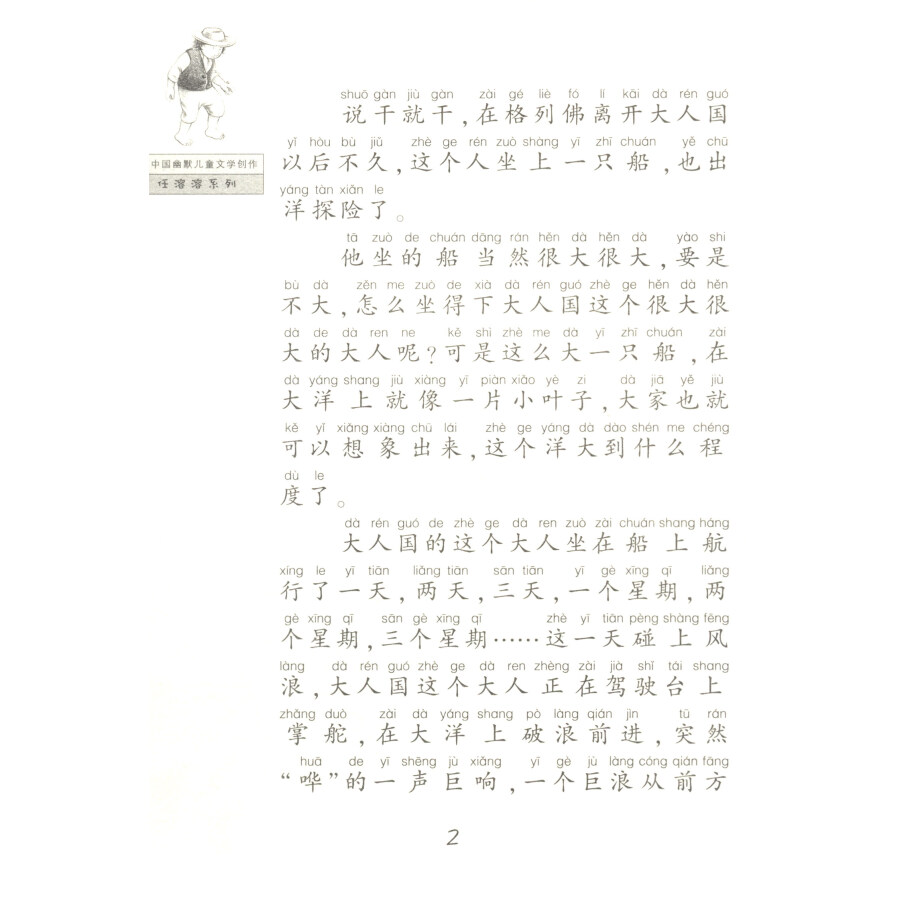 中国幽默儿童文学创作
任溶溶系列
shuō gàn jiù gàn zài gé liè fó lí kāi dà rén guó
说干就干,在格列佛离开大人国
yǐ hòu bù jiǔ zhè ge rén zuò shàng yī zhī chuán yě chū
以后不久,这个人坐上一只船,也出
yáng tàn xiǎn le
洋探险了。
tā zuò de chuán dāng rán hěn dà hěn dà yào shi
他坐的船当然很大很大,要是
bù dà zěn me zuò de xià dà rén guó zhè ge hěn dà hěn
不大,怎么坐得下大人国这个很大很
dà de dà ren ne kě shì zhè me dà yī zhī chuán zài
大的大人呢?可是这么大一只船,在
dà yáng shang jiù xiàng yī piàn xiǎo yè zi dà jiā yě jiù
大洋上就像一片小叶子,大家也就
kě yǐ xiǎng xiàng chū lái zhè ge yáng dà dào shén me chéng
可以想象出来,这个洋大到什么程
dù le
度了。
dà rén guó de zhè ge dà ren zuò zài chuán shang háng
大人国的这个大人坐在船上航
xíng le yī tiān liǎng tiān sān tiān yī gè xīng qī liǎng
行了一天,两天,三天,一个星期,两
gè xīng qī sān gè xīng qī zhè yī tiān pèng shàng fēng
个星期,三个星期……这一天碰上风
làng dà rén guó zhè ge dà ren zhèng zài jià shǐ tái shang
浪,大人国这个大人正在驾驶台上
zhǎng duò zài dà yáng shang pò làng qián jìn tū rán
掌舵,在大洋上破浪前进,突然
huā de yī shēng jù xiǎng yī gè jù làng cóng qián fāng
“哗”的一声巨响,一个巨浪从前方
2